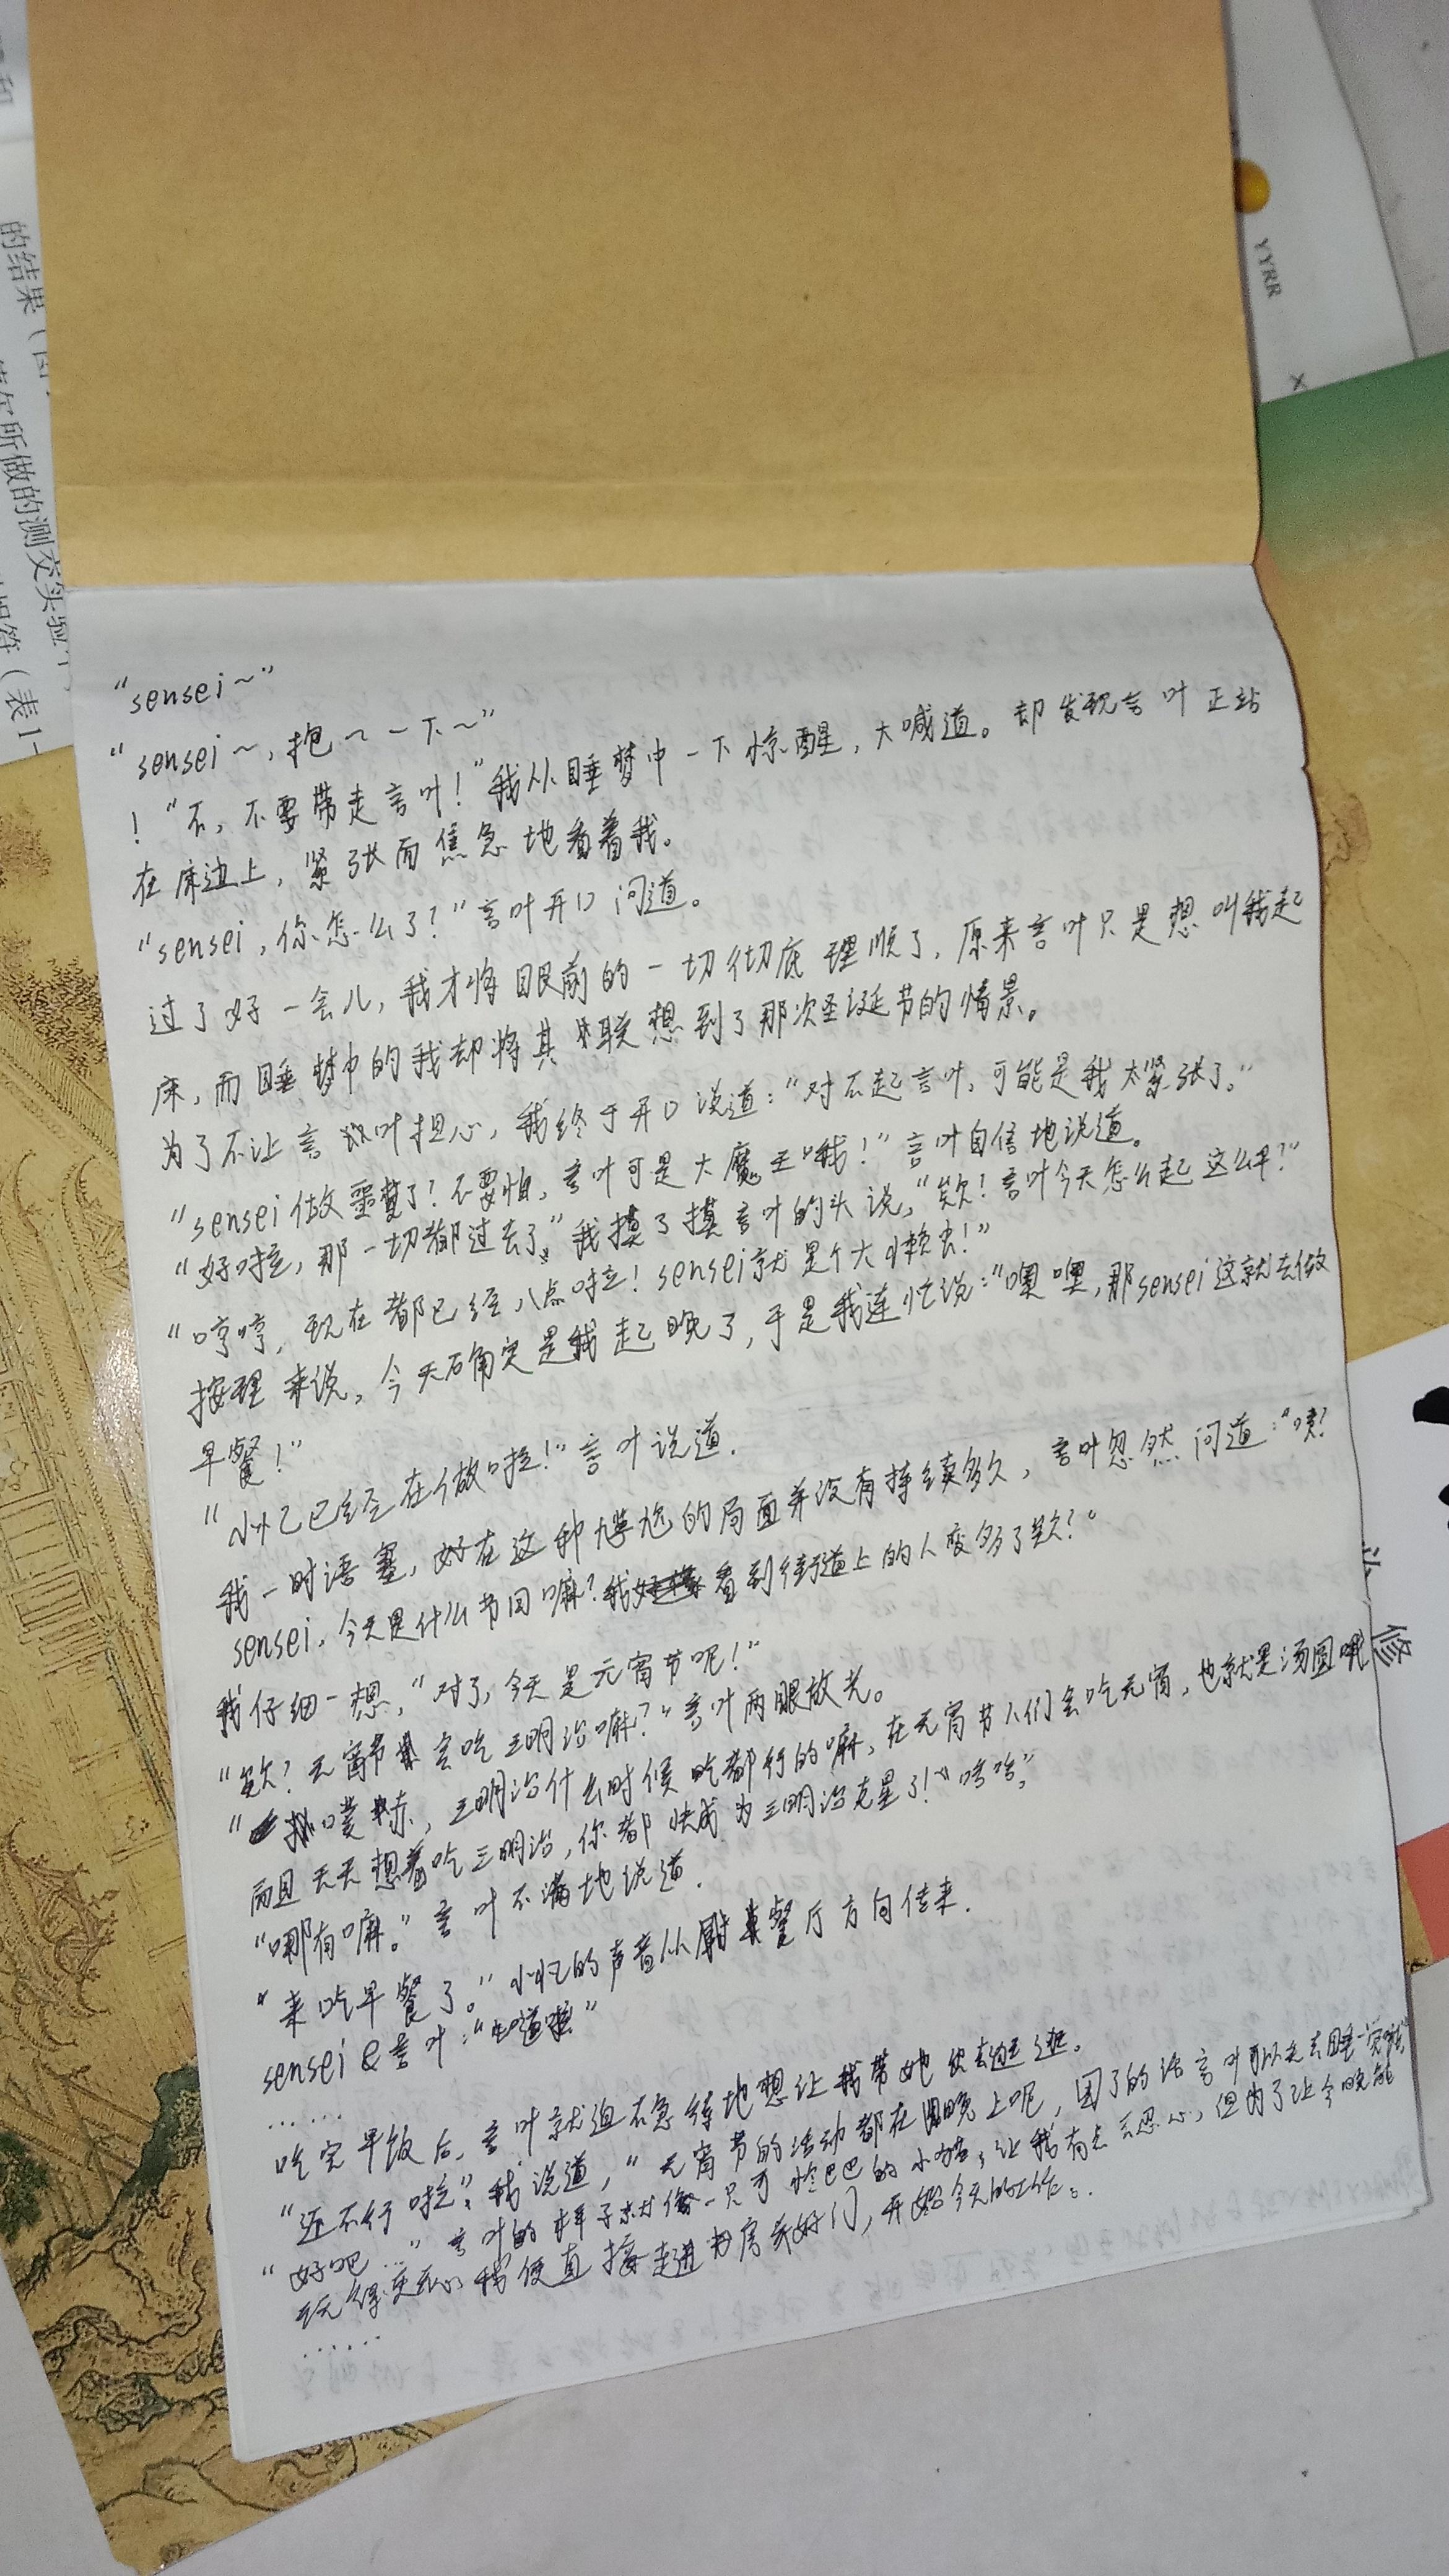 "sensei~"
"sensei~,抱~一下~"
!"不,不要带走言叶!"我从睡梦中一下惊醒,大喊道。却发现言叶正站
在床边上,紧张而焦急地看着我。
"sensei,你怎么了?"言叶开口问道。
过了好一会儿,我才将眼前的一切彻底理顺了,原来言叶只是想叫我起
床,而睡梦中的我却将其联想到了那次圣诞节的情景。
为了不让言叶担心,我终于开口说道:"对不起言叶,可能是我太紧张了。"
"sensei做噩梦了?不要怕,言叶可是大魔王哦!"言叶自信地说道。
"好啦,那一切都过去了。"我摸了摸言叶的头说,"欸!言叶今天怎么起这么早?"
"哼哼,现在都已经八点啦!sensei就是个大懒虫!"
按理来说,今天确实是我起晚了,于是我连忙说:"噢噢,那sensei这就去做
早餐!"
"小忆已经在做啦!"言叶说道.
我一时语塞,好在这种尴尬的局面并没有持续多久,言叶忽然问道:"咦?
sensei,今天是什么节日嘛?我看到街道上的人变多了欸?"
我仔细一想,"对了,今天是元宵节呢!"
"欸?元宵节会吃三明治嘛?"言叶两眼放光。
"噗赤,三明治什么时候吃都行的嘛,在元宵节人们会吃元宵,也就是汤圆哦
而且天天想着吃三明治,你都快成为三明治克星了!哈哈,"
"哪有嘛。"言叶不满地说道.
"来吃早餐了。"小忆的声音从餐厅方向传来.
sensei&言叶:"知道啦"
......
吃完早饭后,言叶就迫不急待地想让我带她去逛逛.
"还不行啦",我说道,"元宵节的活动都在晚上呢,困了的话言叶可以先去睡一觉哦"
"好吧..."言叶的样子就像一只可怜巴巴的小猫,让我有点不忍心,但为了让今晚能
玩得更我便直接走进书房关好门,开始今天的工作。
......
的结果(
所做的测交实验
(表1-
YYRR
X
修